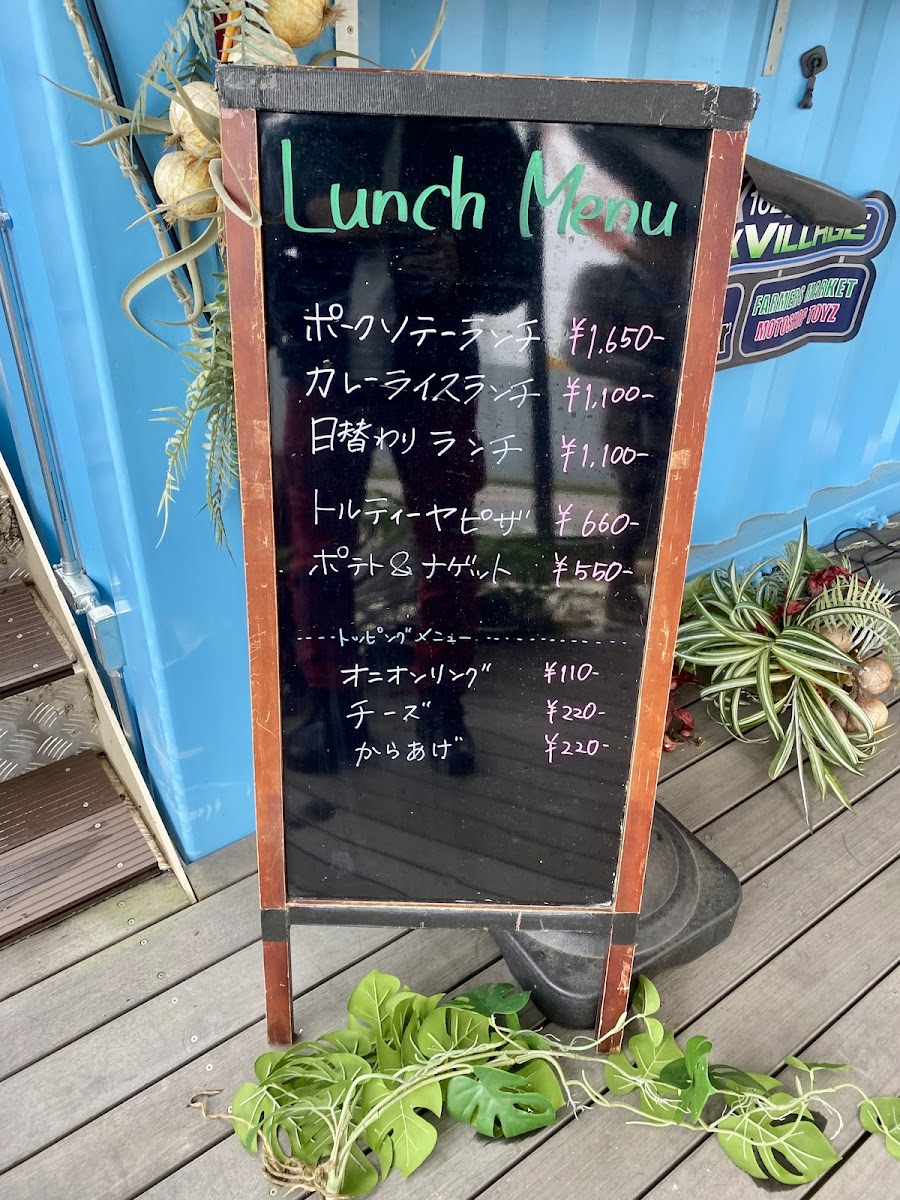 Lunch Menu
ポークソテーランチ ¥1,650-
カレーライスランチ ¥1,100-
日替わりランチ ¥1,100-
トルティーヤピザ ¥660-
ポテト&ナゲット ¥550-
----トッピングメニュー----------------
オニオンリング ¥110-
チーズ ¥220-
からあげ ¥220-
VILLAGE
FARMERS MARKET
MOTOSHOP TOYZ